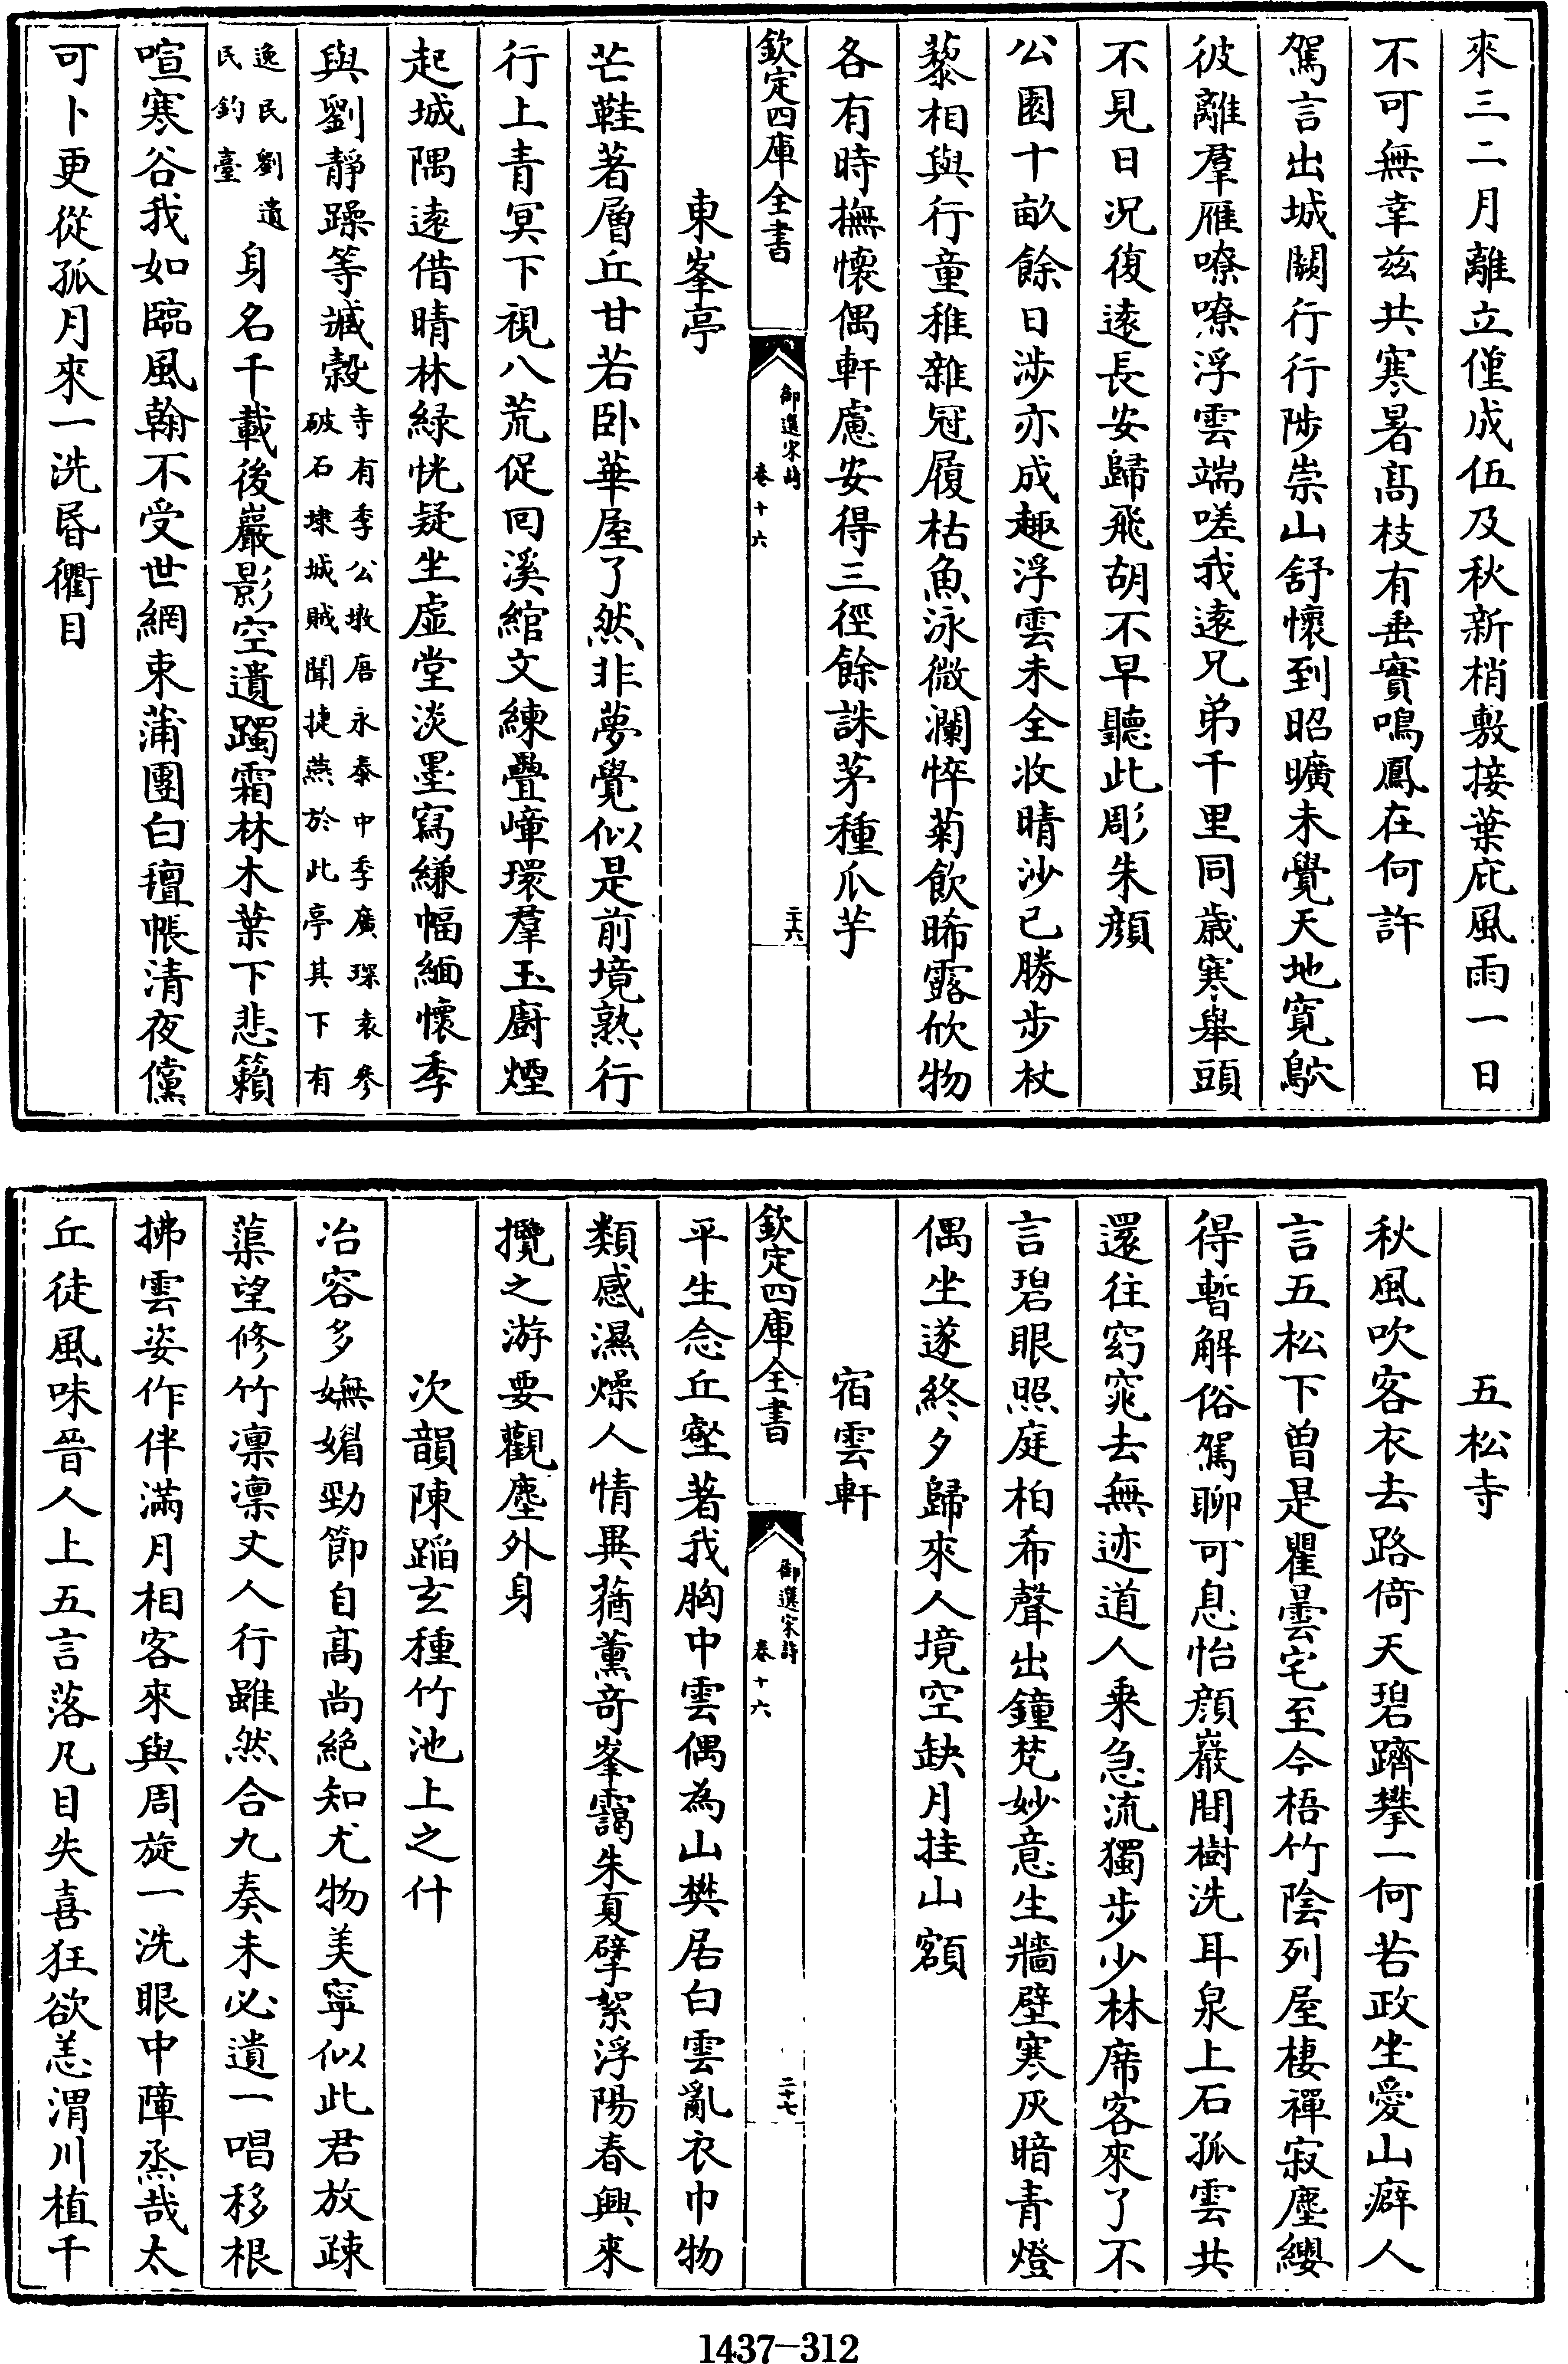 來三二月離立僅成伍及秋新梢敷接葉庇風雨一日
不可無幸兹共寒暑髙枝有垂實鳴鳳在何許
駕言出城闕行行陟崇山舒懷到昭曠未覺天地寛鴥
彼離羣雁嘹嘹浮雲端嗟我逺兄弟千里同歳寒舉頭
不見日况復逺長安歸飛胡不早聽此彫朱顔
公園十畝餘日涉亦成趣浮雲未全收晴沙已勝步杖
藜相與行童稚雜冠履枯魚泳微瀾悴菊飲晞露欣物
各有時撫懷偶軒慮安得三徑餘誅茅種瓜芋
欽定四庫全書
御選宋詩
卷十六
二十六
東峯亭
芒鞋著層丘甘若卧華屋了然非夢覺似是前境熟行
行上青冥下視八荒促囘溪綰文練疊嶂環羣玉廚煙
起城隅逺借晴林緑恍疑坐虚堂淡墨寫縑幅緬懷季
與劉靜躁等臧榖寺有季公墩唐永泰中季廣琛袁參
破石埭城賊聞捷燕於此亭其下有
逸民劉遺
民釣臺
身名千載後巖影空遺躅霜林木葉下悲籟
喧寒谷我如臨風翰不受世網束蒲團白氊帳清夜儻
可卜更從孤月來一洗昏衢目
五松寺
秋風吹客衣去路倚天碧躋攀一何若政坐愛山癖人
言五松下曽是瞿曇宅至今梧竹陰列屋棲禪寂塵纓
得暫解俗駕聊可息怡顔巖間樹洗耳泉上石孤雲共
還往窈窕去無迹道人乗急流獨步少林席客來了不
言碧眼照庭柏希聲出鐘梵妙意生牆壁寒灰暗青燈
偶坐遂終夕歸來人境空缺月挂山額
宿雲軒
欽定四庫全書
御選宋詩
卷十六
二十七
平生念丘壑著我胸中雲偶為山樊居白雲亂衣巾物
類感濕燥人情異蕕薰奇峯靄朱夏擘絮浮陽春興來
攬之游要觀塵外身
次韻陳蹈玄種竹池上之什
冶容多嫵媚勁節自髙尚絶知尤物美寧似此君放疎
蕖望修竹凛凛丈人行雖然合九奏未必遺一唱移根
拂雲姿作伴滿月相客來與周旋一洗眼中障烝哉太
丘徒風味晉人上五言落凡目失喜狂欲恙渭川植千
1437—312